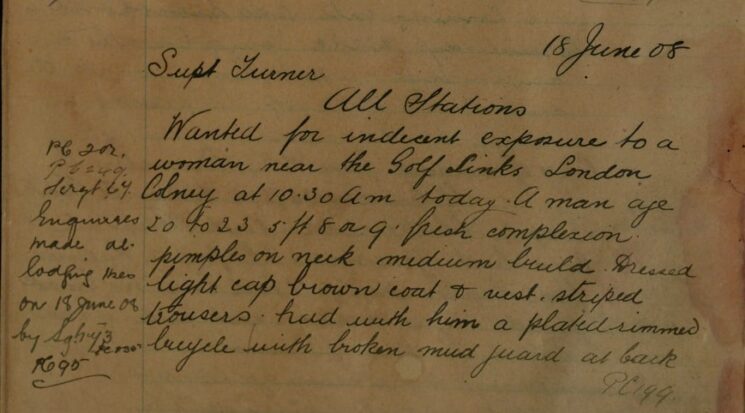 18 June 08
Supt Turner
All Stations
Wanted for indecent exposure to a
woman near the Golf Links London
Colney at 10.30 am today. A man age
20 to 23 5 ft 8 or 9. fresh complexion
pimples on neck medium build. Dressed
light cap brown coat & vest. striped
trousers. had with him a plated rimmed
bicycle with broken mud guard at back
PC 199.
PC 202.
Sergt 64.
Enquiries
made at
lodging Hses
on 18 June 08
by Sgt
PC 95